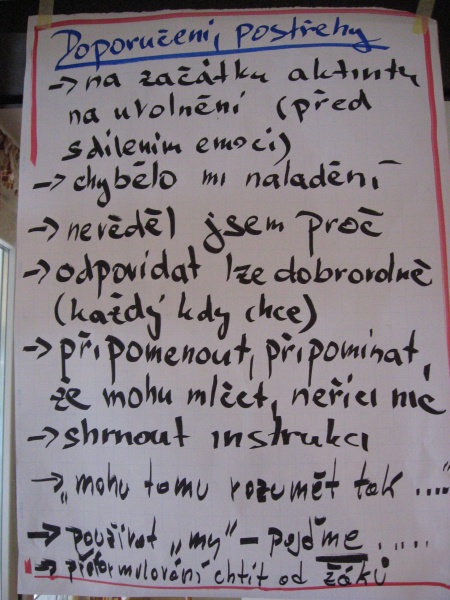 Doporučení, postřehy
→ na začátku aktivitu
na uvolnění (před
sdílením emocí)
→ chybělo mi naladění
→ nevěděl jsem proč
→ odpovídat lze dobrovolně
(každý kdy chce)
→ připomenout, připomínat,
že mohu mlčet, neříci nic
→ shrnout instrukci
→ „mohu tomu rozumět tak ....."
→ používat „my" – pojďme .....
→ přeformulování chtít od žáků